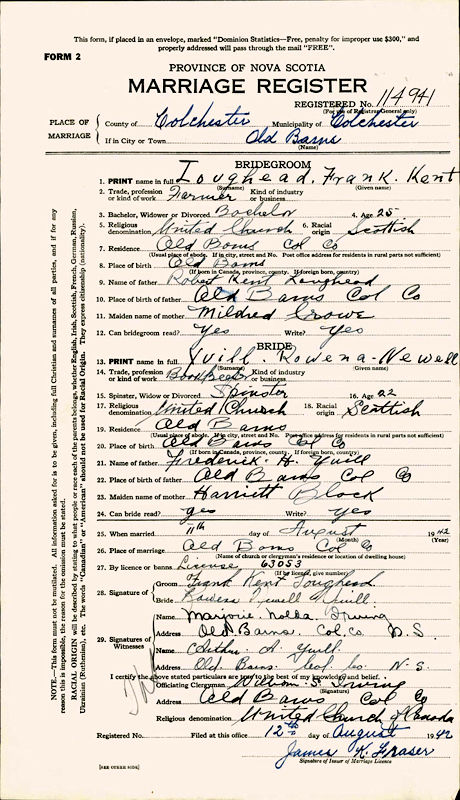 This form, if placed in an envelope, marked "Dominion Statistics—Free, penalty for improper use $300," and
properly addressed will pass through the mail "FREE".
FORM 2
PROVINCE OF NOVA SCOTIA
MARRIAGE REGISTER
REGISTERED No. 114941
(For use of Registrar General only)
PLACE OF MARRIAGE
County of Colchester Municipality of Colchester
If in City or Town Old Barns
(Name)
BRIDEGROOM
1. PRINT name in full Loughead, Frank Kent
(Surname) (Given name)
2. Trade, profession or kind of work Farmer Kind of industry or business
3. Bachelor, Widower or Divorced Bachelor 4. Age 25
5. Religious denomination United Church 6. Racial origin Scottish
7. Residence Old Barns Col Co
(Usual place of abode. If in city, street and No. Post office address for residents in rural parts not sufficient)
8. Place of birth Old Barns
(If born in Canada, province, county. If foreign born, country)
9. Name of father Robert Kent Loughead
10. Place of birth of father Old Barns Col Co
11. Maiden name of mother Mildred Crowe
12. Can bridegroom read? Yes Write? Yes
BRIDE
13. PRINT name in full Yuill, Rowena-Newell
(Surname) (Given name)
14. Trade, profession or kind of work Kind of industry or business
15. Spinster, Widow or Divorced Spinster 16. Age 22
17. Religious denomination United Church 18. Racial origin Scottish
19. Residence Old Barns
(Usual place of abode. If in city, street and No. Post office address for residents in rural parts not sufficient)
20. Place of birth Old Barns Col Co
(If born in Canada, province, county. If foreign born, country)
21. Name of father Frederick H. Yuill
22. Place of birth of father Old Barns Col Co
23. Maiden name of mother Harriett Block
24. Can bride read? yes Write? Yes
25. When married 11th day of August 1942
(Month) (Year)
26. Place of marriage Old Barns Col Co
(Name of church or clergyman's residence or location of dwelling house)
27. By licence or banns License 63053
(If by licence, give number)
28. Signature of
Groom Frank Kent Loughead
Bride Rowena Newell Yuill
29. Signature of Witnesses
Name Marjorie Irving
Address Old Barns, Col. Co. N.S.
Name A. Yuill
Address Old Barns Col. Co. N.S.
I certify the above stated particulars are true to the best of my knowledge and belief.
Officiating Clergyman William S. Irving
(Signature)
Address Old Barns Col Co
Religious denomination United Church of Canada
Registered No. Filed at this office 12th day of August 1942
James K. Fraser
Signature of Issuer of Marriage Licence
[SEE OTHER SIDE]
NOTE.—This form must not be mutilated. All information asked for is to be given, including full Christian and surnames of all parties, and if for any
reason this is impossible, the reason for the omission must be stated.
RACIAL ORIGIN will be described by stating to what people or race each of the parents belongs, whether English, Irish, Scottish, French, German, Russian,
Ukrainian (Ruthenian), etc. The words "Canadian" or "American" should not be used for Racial Origin. They express citizenship (nationality).